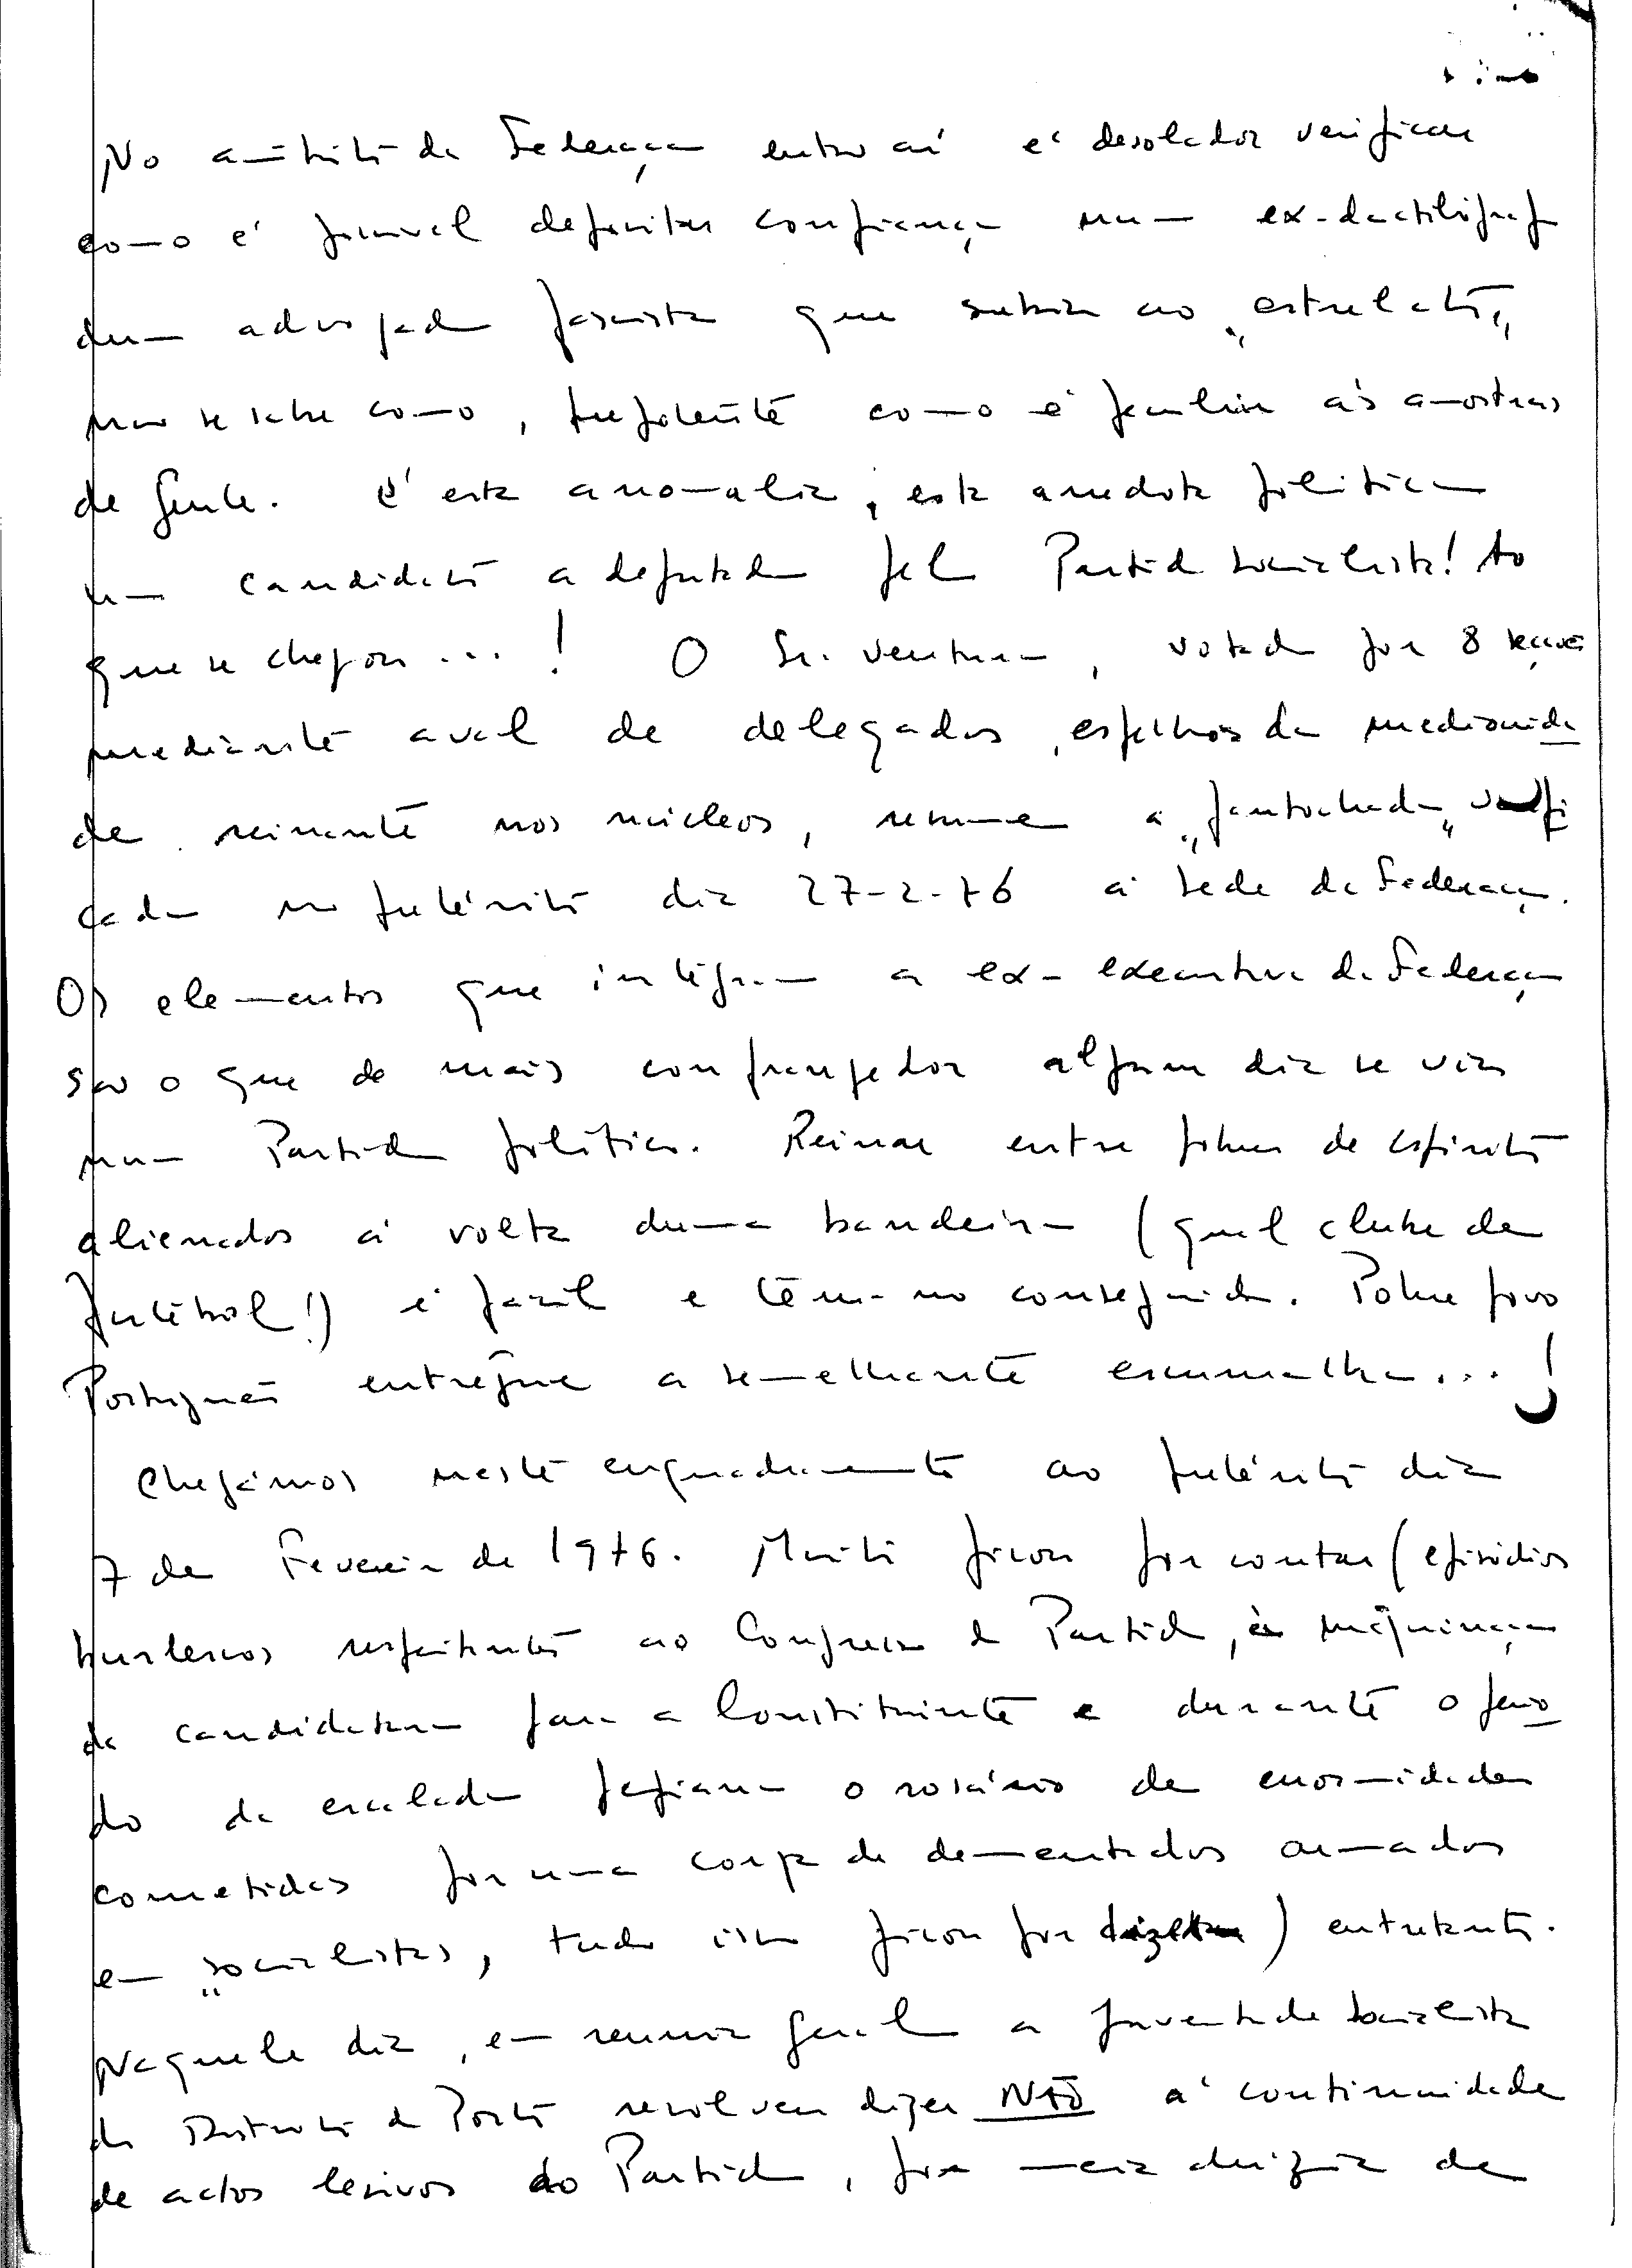 No âmbito da Federação então aí é desolador verificar
como é possível depositar confiança num ex-dactilógrafo
dum advogado fascista que subira ao "estrelato",
não se sabe como, prepotente como é peculiar às amostras
de gente. É esta anomalia, esta anedota política
um candidato a deputado pelo Partido Socialista! Ao
que se chegou...! O Sr. Ventura, votado por 8 secções
mediante aval de delegados, espelhos da mediocrida
de reinante nos núcleos, resume a "fantochada" verifi
cada no pretérito dia 27-2-76 à sede da Federação.
Os elementos que integram a ex-executiva da Federação
são o que de mais confrangedor algum dia se viu
num Partido político. Reinar entre pobres de espírito
alienados à volta duma bandeira (qual clube de
futebol!) é fácil e têm-no conseguido. Pobre povo
Português entregue a semelhante escumalha...!
Chegámos neste enquadramento ao pretérito dia
7 de Fevereiro de 1976. Muito ficou por contar (episódios
burlescos respeitantes ao Congresso do Partido, à
da candidatura para a Constituinte e durante o perío
do da escalada o rosário de enormidades
cometidas por uma corja de dementados armados
em "socialistas", tudo isso ficou por dizer) entretanto.
Naquele dia, em reunião geral a Juventude Socialista
do Distrito do Porto resolveu dizer NÃO à continuidade
de actos lesivos do Partido, por meia dúzia de